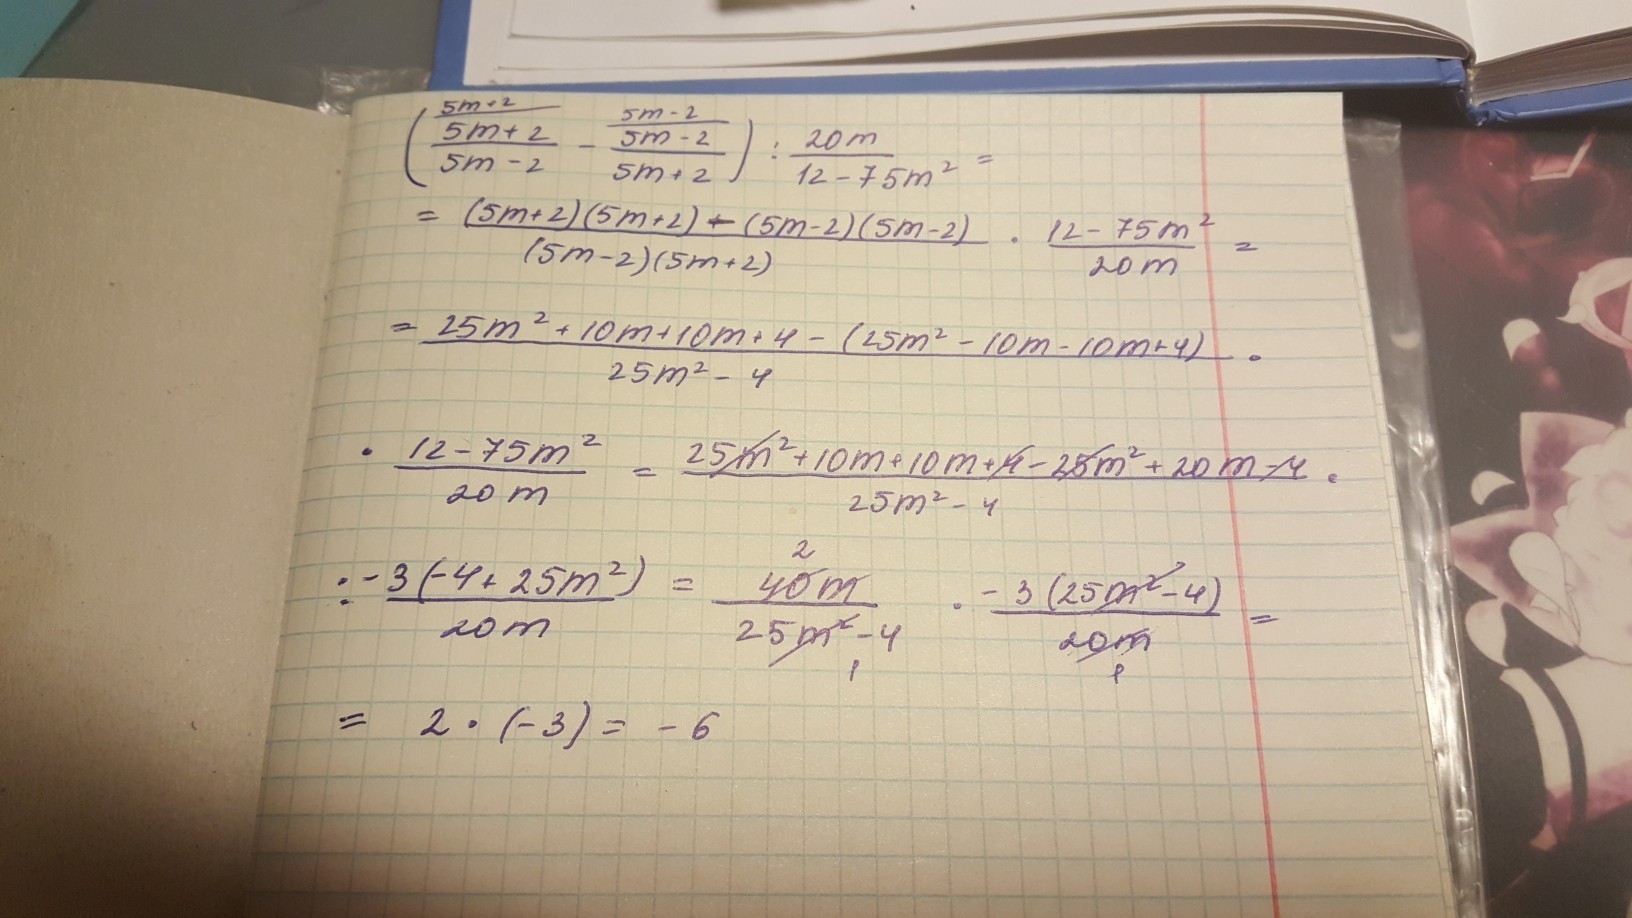 ( \frac{5m+2}{5m-2} ^{5m+2} - \frac{5m-2}{5m+2} ^{5m-2} ) : \frac{20m}{12-75m^2} =
= \frac{(5m+2)(5m+2) - (5m-2)(5m-2)}{(5m-2)(5m+2)} · \frac{12-75m^2}{20m} =
= \frac{25m^2+10m+10m+4-(25m^2-10m-10m+4)}{25m^2-4} ·
· \frac{12-75m^2}{20m} = \frac{25m^2+10m+10m+4-25m^2+20m-4}{25m^2-4} ·
· \frac{-3(-4+25m^2)}{20m} = \frac{40m ^2}{25m^2-4 _1} · \frac{-3(25m^2-4)}{20m _1} =
= 2 · (-3) = -6